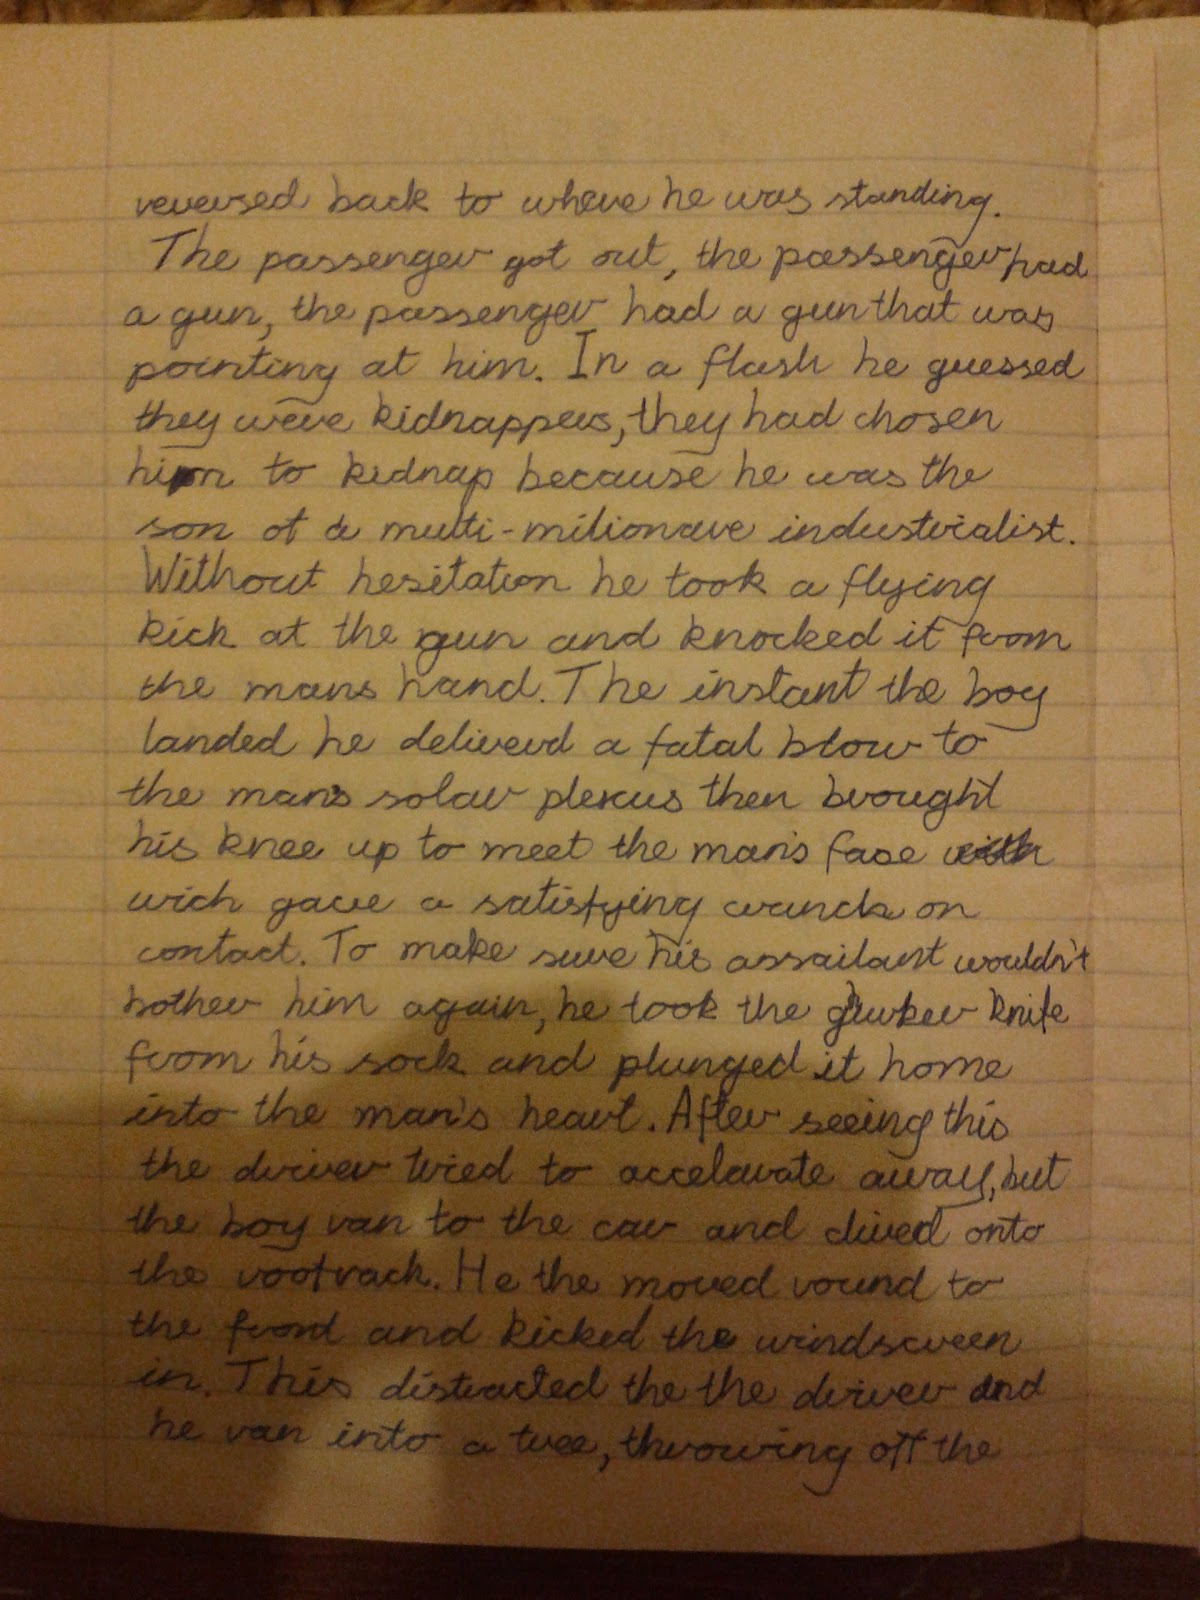 reversed back to where he was standing.
The passenger got out, the passenger had
a gun, the passenger had a gun that was
pointing at him. In a flash he guessed
they were kidnappers, they had chosen
him to kidnap because he was the
son of a multi-milionare industrialist.
Without hesitation he took a flying
kick at the gun and knocked it from
the mans hand. The instant the boy
landed he deliverd a fatal blow to
the man's solar plexus then brought
his knee up to meet the man's face with
wich gave a satisfying crunch on
contact. To make sure his assailant wouldn't
bother him again, he took the ghurker knife
from his sock and plunged it home
into the man's heart. After seeing this
the driver tried to accelarate away, but
the boy ran to the car and dived onto
the roofrack. He the moved round to
the front and kicked the windscreen
in. This distracted the the driver and
he ran into a tree, throwing off the